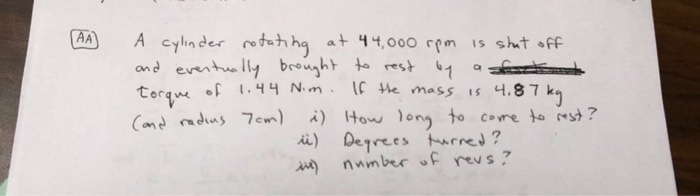 AA
A cylinder rotating at 44,000 rpm is shut off
and eventually brought to rest by a
torque of 1.44 N.m. If the mass is 4.87 kg
(and radius 7cm) i) How long to come to rest?
ii) Degrees turned?
iii) number of revs?